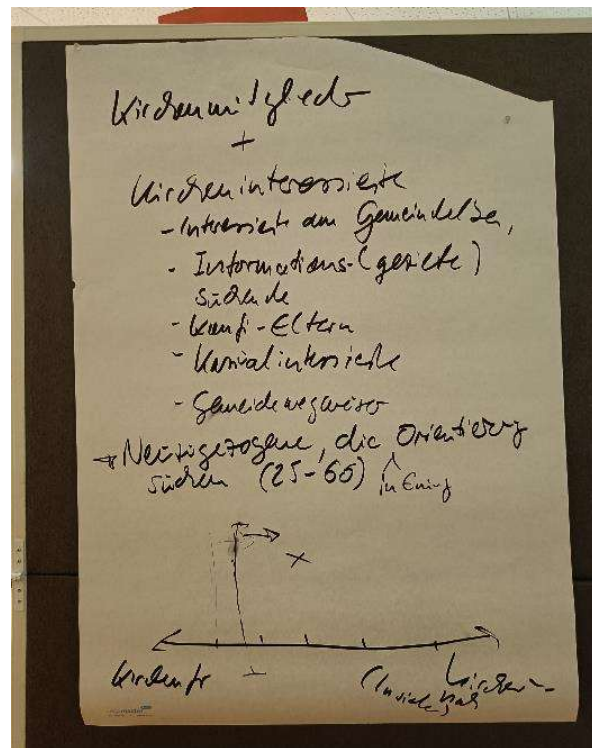 Kirchenmitglieder
+
Kircheninteressierte
- Interessierte am Gemeindeleben,
- Informations-(gezielte)
suchende
- Konfi-Eltern
- Gemeindewegweiser
→ Neuzugezogene, die Orientierung
suchen (25-65) in Ening